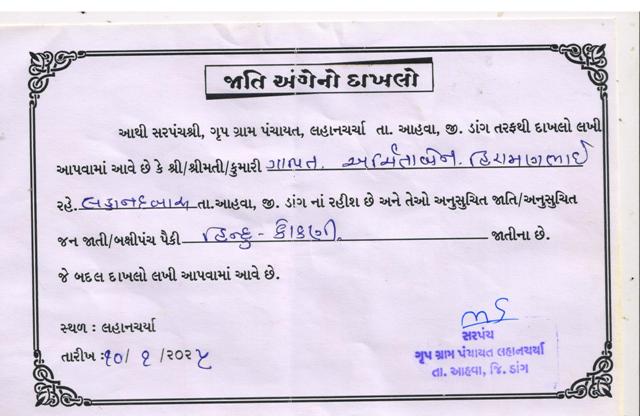 જાતિ અંગેનો દાખલો
આથી સરપંચશ્રી, ગૃપ ગ્રામ પંચાયત, લહાનચર્યા તા. આહવા, જી. ડાંગ તરફથી દાખલો લખી
આપવામાં આવે છે કે શ્રી/શ્રીમતી/કુમારી ગાયત. અર્મિતાબેન. હિરામણભાઈ
રહે. લહાનદબાસ તા.આહવા, જી. ડાંગ નાં રહીશ છે અને તેઓ અનુસુચિત જાતિ/અનુસુચિત
જન જાતી/બક્ષીપંચ પૈકી હિન્દુ - કોકણી. જાતીના છે.
જે બદલ દાખલો લખી આપવામાં આવે છે.
સ્થળ : લહાનચર્યા
તારીખ : ૧૦/ ૧ /૨૦૨૫
સરપંચ
ગૃપ ગ્રામ પંચાયત લહાનચર્યા
તા. આહવા, જિ. ડાંગ